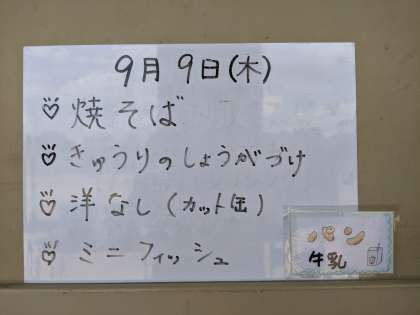 9月9日(木)
焼そば
きゅうりのしょうがづけ
洋なし(カット缶)
ミニフィッシュ
パン
牛乳